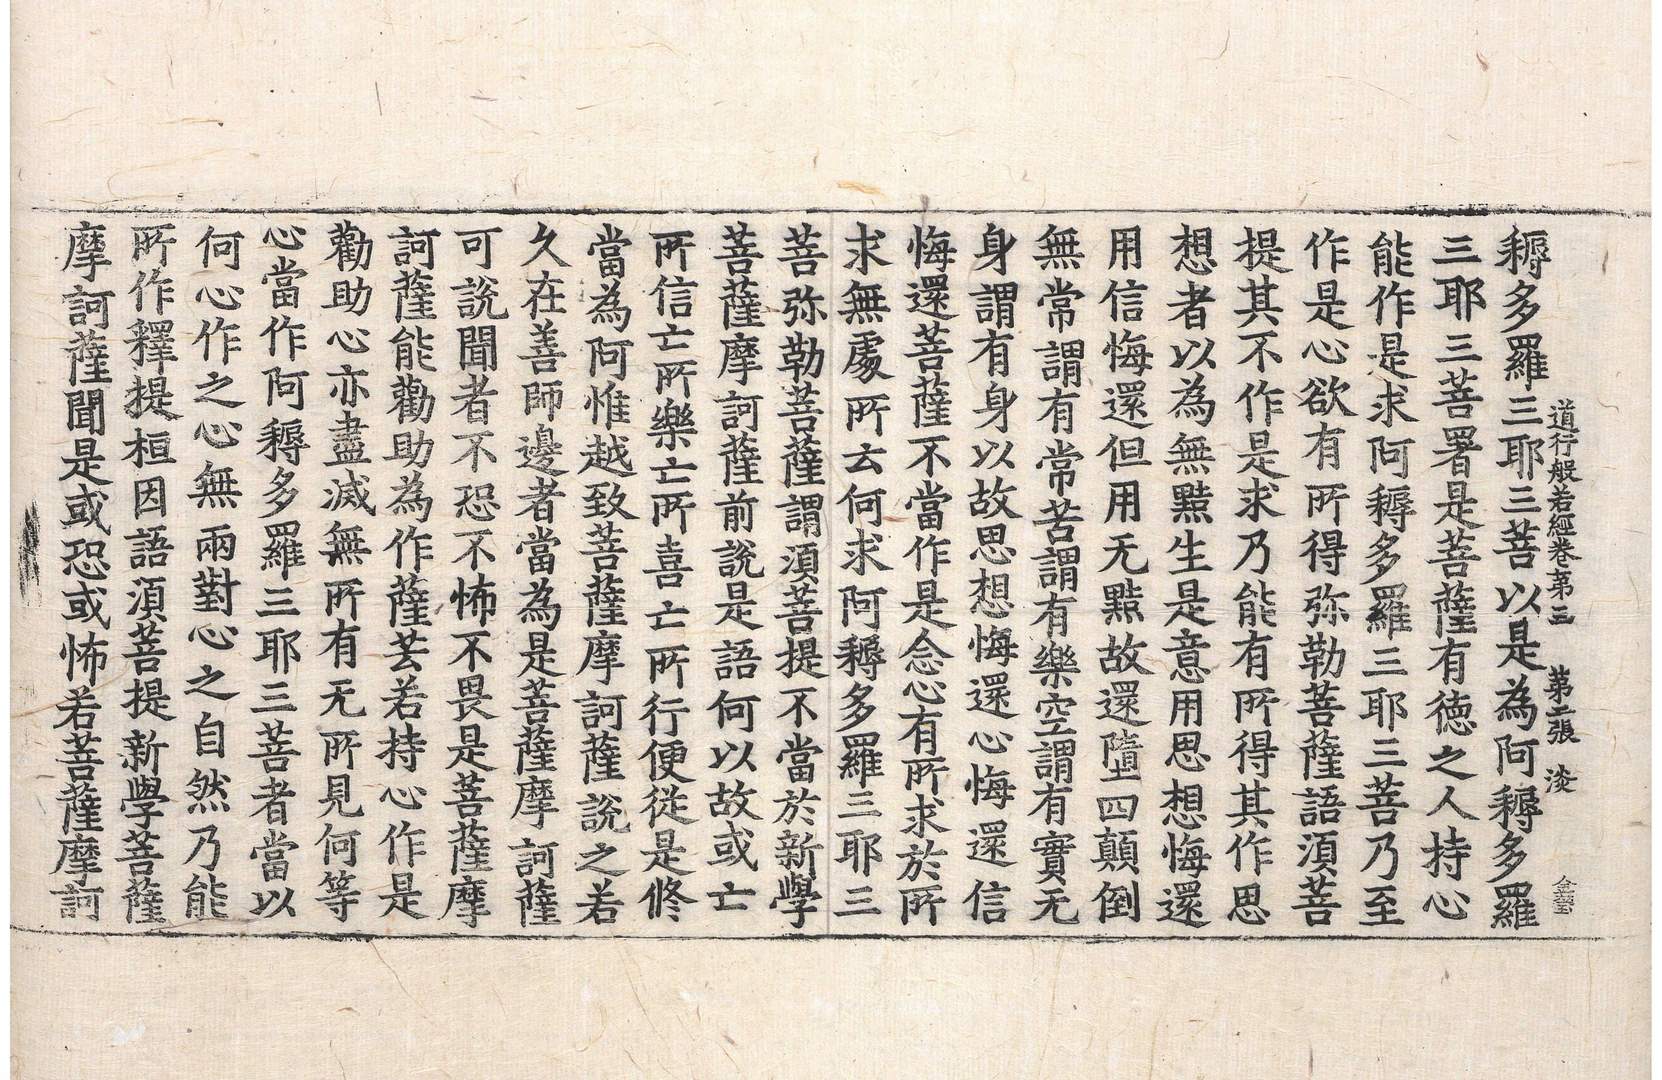 道行般若經卷第三 第二張 淡
耨多羅三耶三菩以是為阿耨多羅
三耶三菩署是菩薩有德之人持心
能作是求阿耨多羅三耶三菩乃至
作是心欲有所得弥勒菩薩語湏菩
提其不作是求乃能有所得其作思
想者以為無黠生是意用思想悔還
用信悔還但用无黠故還墮四顛倒
無常謂有常苦謂有樂空謂有實无
身謂有身以故思想悔還心悔還信
悔還菩薩不當作是念心有所求於所
求無處所云何求阿耨多羅三耶三
菩弥勒菩薩謂湏菩提不當於新學
菩薩摩訶薩前說是語何以故或亡
所信亡所樂亡所喜亡所行便從是修
當為阿惟越致菩薩摩訶薩說之若
久在善師邊者當為是菩薩摩訶薩
可說聞者不恐不怖不畏是菩薩摩
訶薩能勸助為作薩芸若持心作是
勸助心亦盡滅無所有无所見何等
心當作阿耨多羅三耶三菩者當以
何心作之心無兩對心之自然乃能
所作釋提桓因語湏菩提新學菩薩
摩訶薩聞是或恐或怖若菩薩摩訶